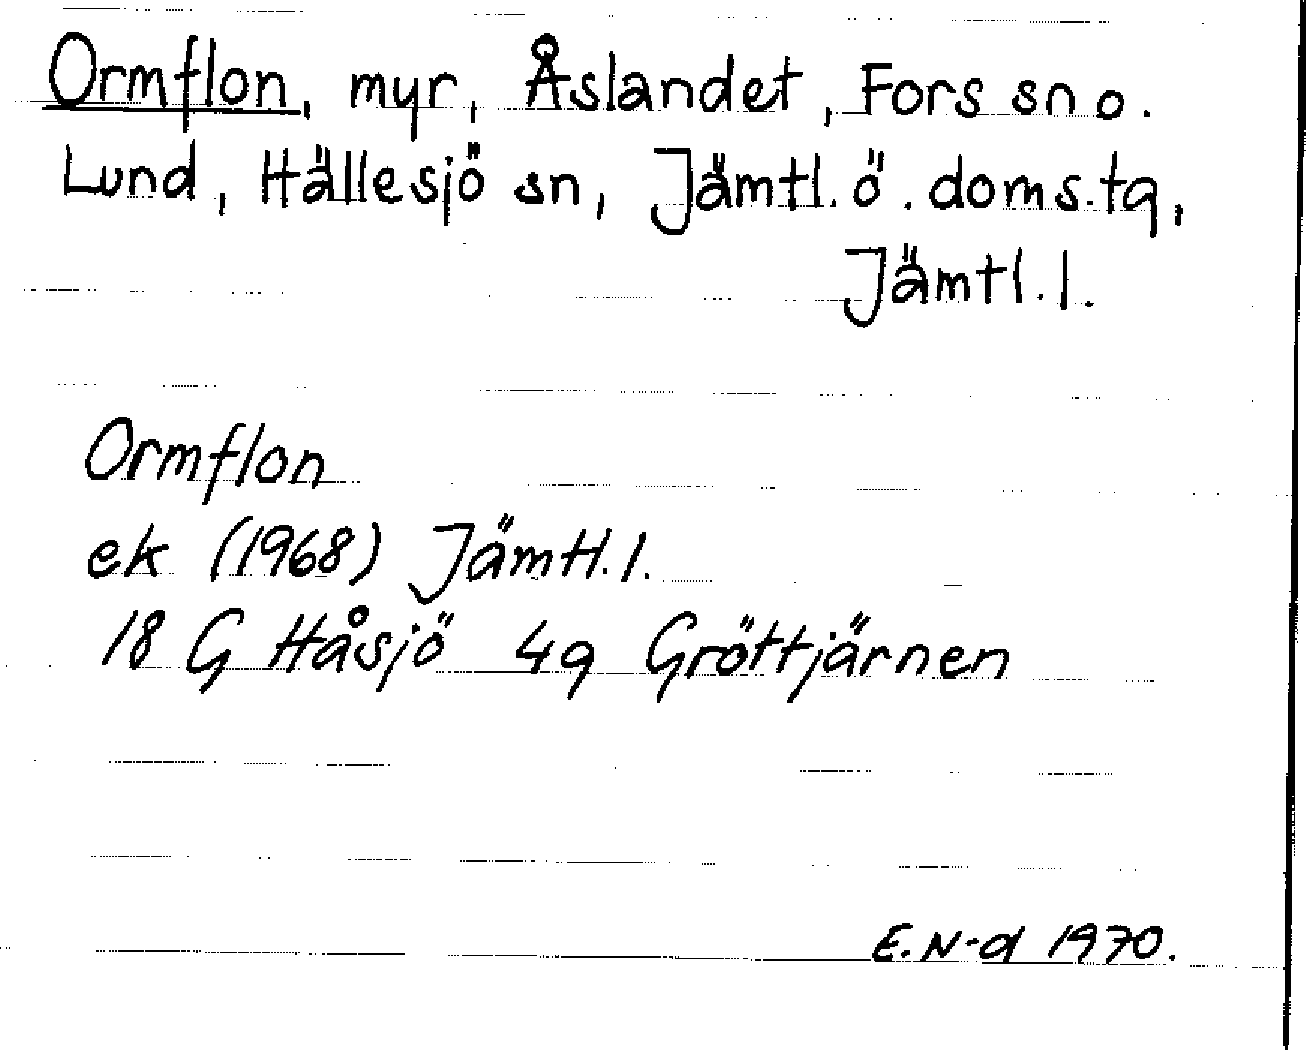 Ormflon, myr, Åslandet, Fors sn o.
Lund, Hällesjö sn, Jämtl. ö. doms.tg,
Jämtl. l.
Ormflon
ek (1968) Jämtl. l.
18 G Håsjö 4g Gröttjärnen
E. N-d 1970.